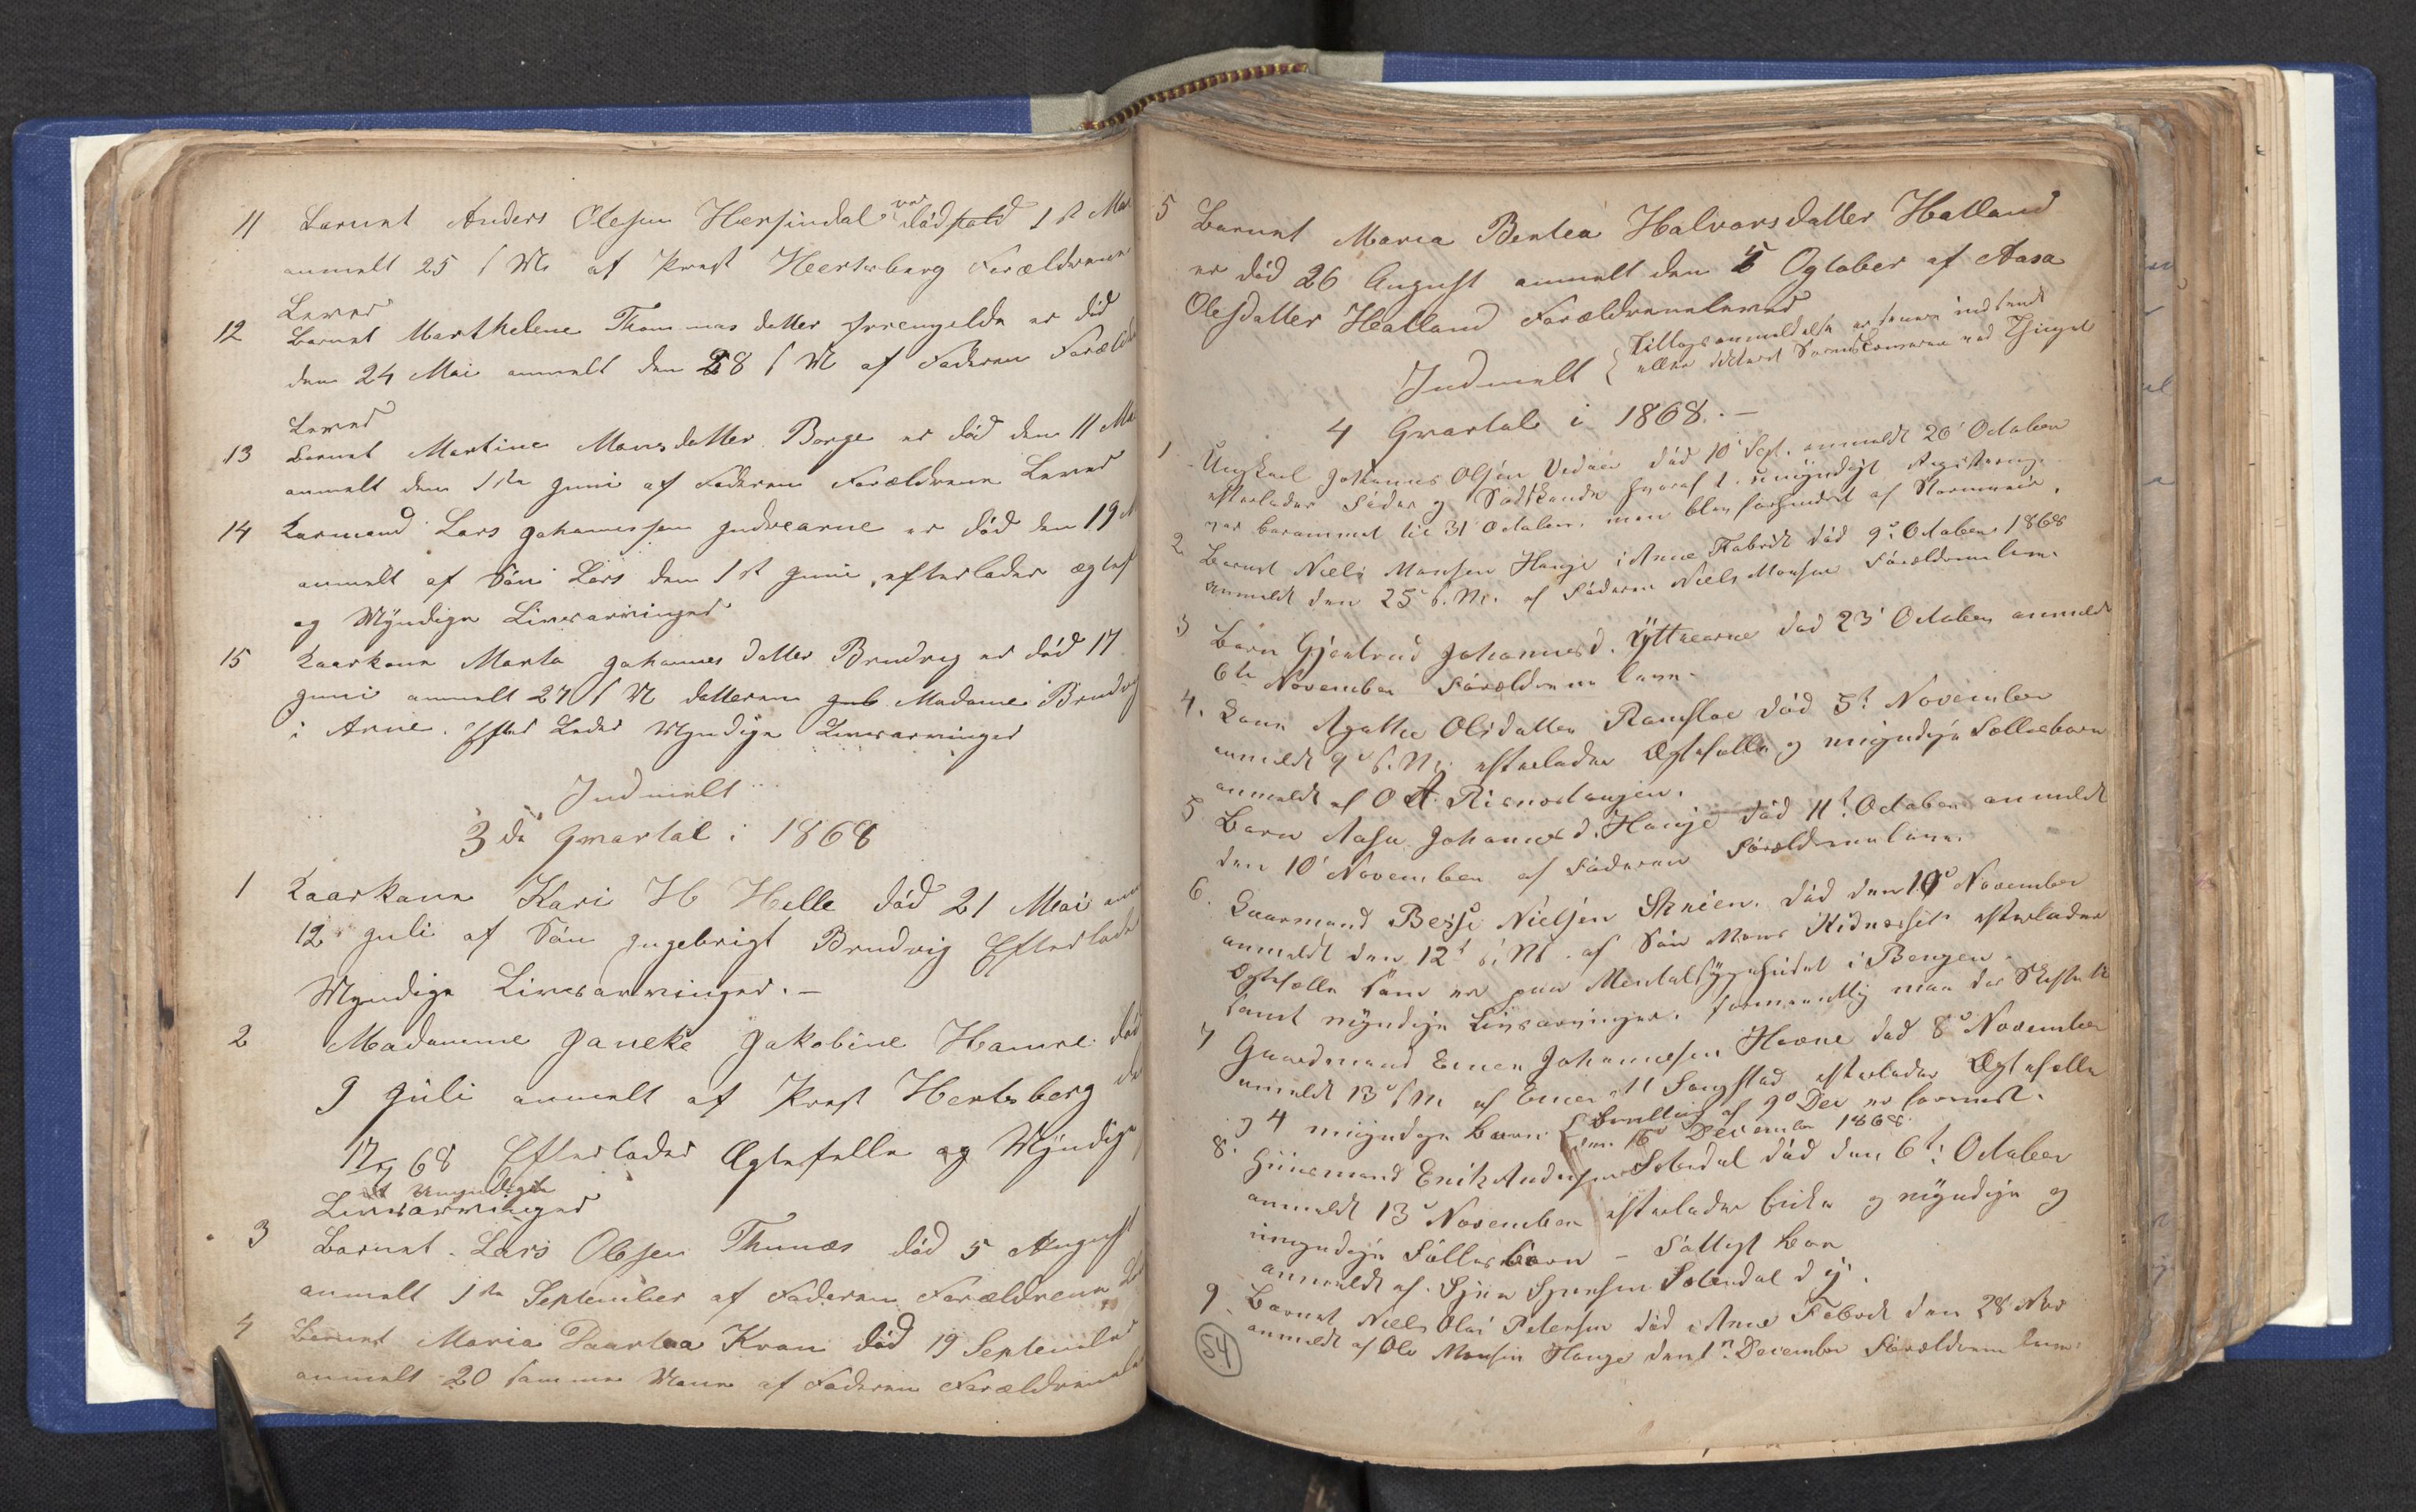 11 Barnet Anders Olesen Hersindal var dødfød 1st Mai
anmelt 25 s M af Prest Heertsberg Forældrene
Lever
12 Barnet Marthelene Thommasdatter er død
den 24 Mai anmelt den 28 s M af Faderen Foræld
Lever
13 Barnet Martine Monsdatter Borge er død den 11 Ma
anmelt den 1ste Juni af Faderen Forældrene Lever
14 Kармand Lars Johannessen Indrearne er død den 19
anmelt af Søn Lars den 1st Juni, efterlader ægtef
og Myndige Livsarvinger
15 Kaarkone Marta Johannesdatter Brudvig er død 17
Juni anmelt 27 s M datteren Madame Brudvig
i Arne. Efterlader Myndige Livsarvinger
Indmelt
3de Qvartal i 1868
1 Kaarkone Kari H Helle død 21 Mai an
12 Juli af Søn Ingebrigt Brudvig Efterlade
Myndige Livsarvinger. —
2 Madamme Janeke Jakobine Hamre død
9 Juli anmelt af Prest Hertsberg de
17/7 68 Efterlader Ægtefelle og Myndige
et Umyndigt
Livsarvinger
3 Barnet Lars Olesen Thunæs død 5 August
anmelt 1ste September af Faderen Forældrene
4 Barnet Maria Paartaa Kran død 19 September
anmelt 20 samme Maane af Faderen Forældrene
5 Barnet Maria Bentea Halvorsdatter Hatland
er død 26 August anmelt den 5 Ogtober af Aasa
Olesdatter Hatland Forældrene lever
Indmelt { Tillægsanmeldelse er senere indsendt
eller ved Thinget
4 Qvartal i 1868. —
1 Ungkarl Johannes Olsen død 10' Sept. anmeldt 20' October
efterlader Fader og Sødskende hvoraf 1 umyndigt Registrering
var berammet til 31 October, men blev forhindret af Stormveir.
2 Barnet Niels Monsen Hauge i Arne Fabrik død 9' October 1868
anmeldt den 25' s. M. af Faderen Niels Monsen Forældrene leve.
3 Barn Gjertrud Johannesd. Yttrearne død 23' October anmeldt
6te November Forældrene leve.
4. Kone Agathe Olsdatter Ramsloe død 5t November
anmeldt 9' s. M. efterlader Ægtefælle og myndige Fællesbørn
anmeldt af O A Risnestangen.
5 Barn Aasa Johannesd. Hauge død 11t October anmeldt
den 10' November af Faderen Forældrene leve.
6. Kaarmand Besse Nielsen Skreien. død den 10' November
anmeldt den 12t s. M. af Søn Mons Kidnæsset efterlader
Ægtefælle som er paa Mentalsygehuset i Bergen.
samt myndige Livsarvinger. formeentlig maa der Skiftes
7 Gaardmand Einer Johannessen Havne død 8' November
anmeldt 13' s M. af Einer Songstad efterlader Ægtefælle
og 4 myndige Børn { Bevilling af 9' Dec er formeldt.
den 16' December 1868.
8. Huusmand Erik Andersen Solendal død den 6t. October
anmeldt 13' November efterlader Enke og myndige og
umyndige Fælles børn — Fattigt Boe
anmeldt af. Sjur Sjursen Solendal d. y.
9. Barnet Niels Olai Petersen død i Arne Fabrik den 28 Nov
anmeldt af Ole Monsen Hauge den 1' December Forældrene leve.
54